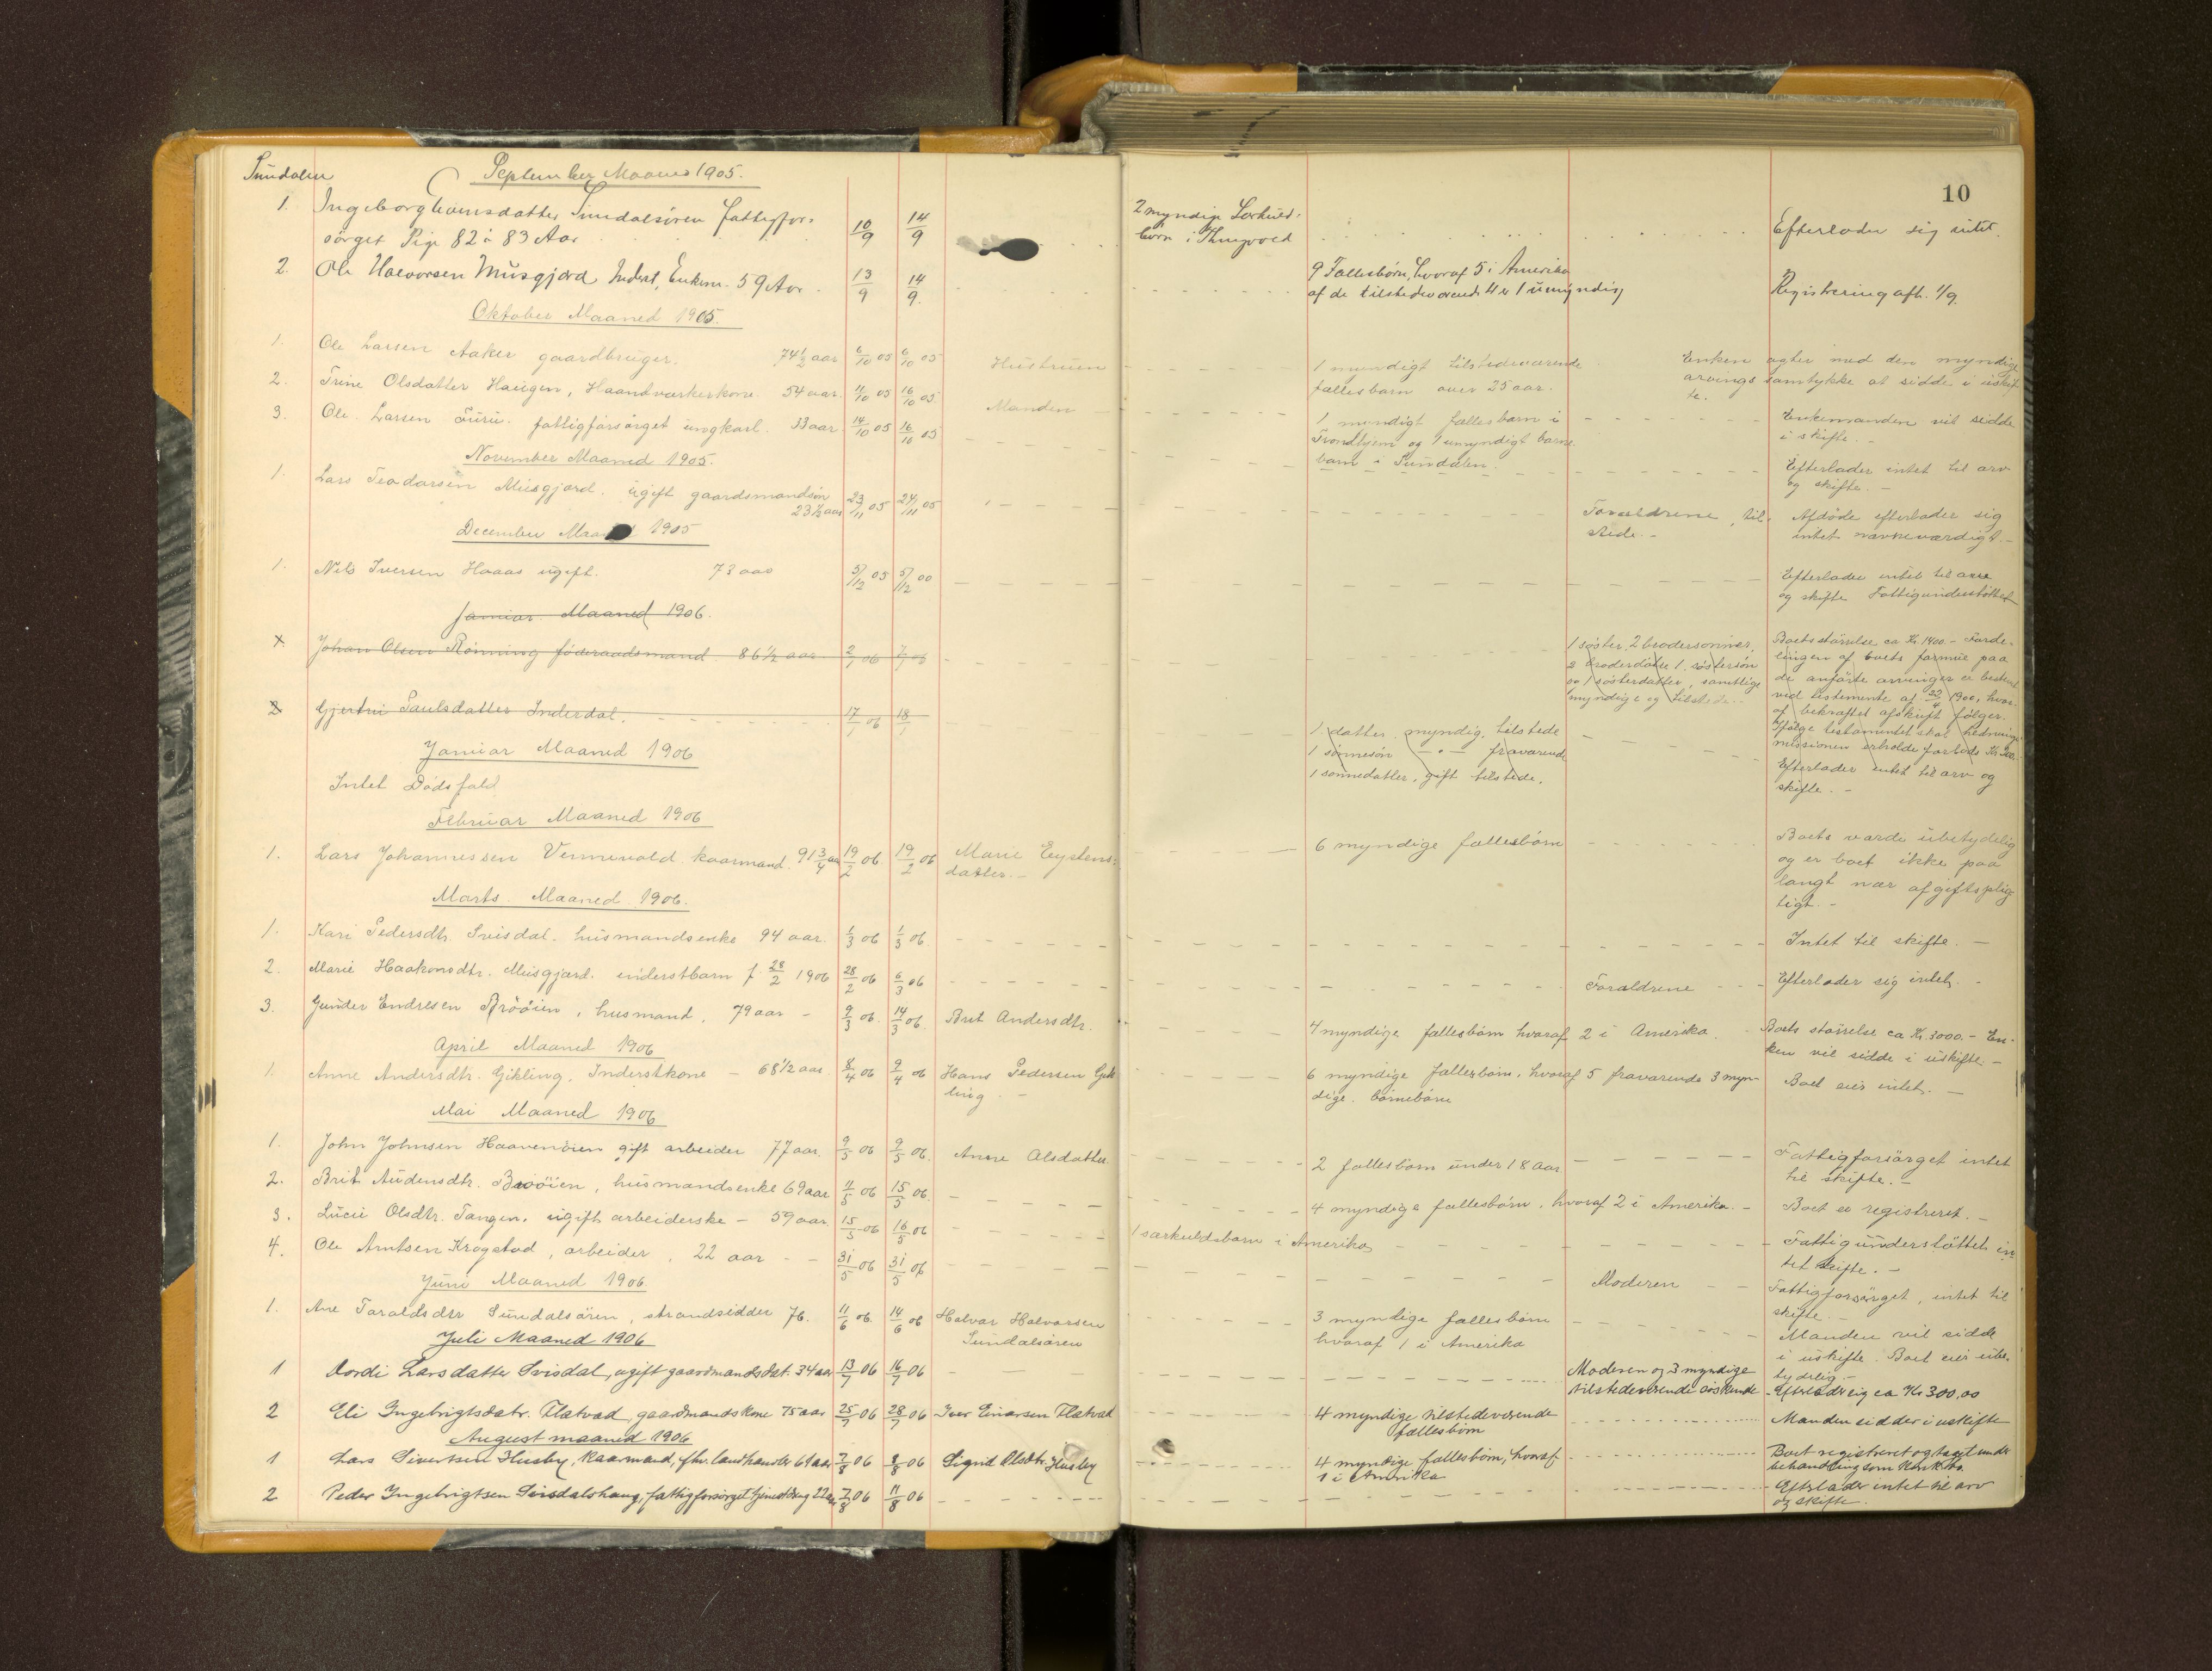 10
Sundalen
September Maaned 1905.
1. Ingeborg Hansdatter Sundalsören fattigfor- 10/9 14/9 2 myndige Særkuld- Efterlader sig intet.
sörget Pige 82 à 83 Aar börn i Thingvold
2. Ole Halvorsen Musgjærd Inderst, Enkem. 59 Aar. 13/9 14/9. 9 Fællesbörn, hvoraf 5 i Amerika
af de tilstedeværende 4 er 1 umyndig Registrering afh. 1/9.
Oktober Maaned 1905.
1. Ole Larsen Aaker gaardbruger. 74 1/2 aar 6/10 05 6/10 05 Hustruen 1 myndigt tilstedeværende Enken agter med den myndige
fællesbarn over 25 aar. arvings samtykke at sidde i uskif
te.
2. Trine Olsdatter Haugen, Haandværkerkone. 54 aar. 11/10 05 16/10 05. Manden 1 myndigt fællesbarn i Enkemanden vil sidde
Trondhjem og 1 umyndigt barne i skifte. -
barn i Sundalen.
3. Ole Larsen Furu. fattigforsörget ungkarl. 13 aar 14/10 05 16/10 05 Efterlader intet til arv
og skifte. -
November Maaned 1905.
1. Lars Teodorsen Musgjærd. ugift gaardmandsön 23/11 05 24/11 05 Forældrene, til- Afdöde efterlader sig
23 1/2 aar stede. - intet nævneværdigt. -
December Maaned 1905
1. Nils Iversen Hoaas ugift. 73 aar 5/12 05 5/12 00 Efterlader intet til arv
og skifte Fattigunderstöttet
Januar Maaned 1906.
x Johan Olsen Rönning föderaadsmand. 86 1/2 aar 2/1 06 7/1 06 1 söster, 2 brodersönner, Boets störrelse ca Kr. 1400.- Forde-
2 broderdötre 1 söstersön lingen af boets formue paa
og 1 sösterdatter, samtlige de anförte arvinger er bestemt
myndige og tilstede. vid testemente af 22/4 1900, hvor-
af bekræftet afskrift fölger.
Ifölge testamentet skal hednings
missionen erholde forlods Kr. 200.
2 Gjertru Paulsdatter Inderdal. 17/1 06 18/1 1 datter myndig, tilstede Efterlader intet til arv og
1 sönnesön - " - fraværende skifte. -
1 sönnedatter, gift tilstede.
Januar Maaned 1906
Intet Dödsfald
Februar Maaned 1906
1. Lars Johannessen Vennevold kaarmand. 91 3/4 aar 19/2 06 19/2 06 Marie Eystens- 6 myndige fællesbörn Boets værdi ubetydelig
datter. - og er boet ikke paa
langt nær afgiftsplig-
tigt. -
Marts Maaned 1906.
1. Kari Pedersdtr. Svisdal. husmandsenke 94 aar. 1/3 06 1/3 06. Intet til skifte. -
2. Marie Haakonsdtr. Musgjærd. inderstbarn f. 28/2 1906 28/2 06 6/3 06 Forældrene Efterlader sig intet. -
3. Gunder Endresen Brööien, husmand. 79 aar - 9/3 06. 14/3 06. Brit Andersdtr. 4 myndige fællesbörn hvoraf 2 i Amerika. Boets störrelse ca Kr. 3000. - En-
ken vil sidde i uskifte. -
April Maaned 1906
1. Anne Andersdtr. Gikling. Inderstkone - 68 1/2 aar. 8/4 06 9/4 06 Hans Pedersen Gik 6 myndige fællesbörn, hvoraf 5 fraværende 3 myn- Boet eier intet. -
ling. - dige. börnebörn
Mai Maaned 1906
1. John Johnsen Haavenöien gift arbeider 77 aar. 9/5 06 9/5 06. Anne Olsdatter 2 fællesbörn under 18 aar Fattigforsörget intet
til skifte. -
2. Brit Audensdtr. Brööien, husmandsenke 69 aar 11/5 06 15/5 06. 4 myndige fællesbörn, hvoraf 2 i Amerika. - Boet er registreret. -
3. Lucie Olsdtr. Tangen. ugift arbeiderske - 59 aar. 15/5 06 16/5 06 1 særkuldsbarn i Amerika Fattigunderstöttet in
tet skifte. -
4. Ole Arntsen Krogstad, arbeider. 22 aar - - 31/5 06 31/5 06 Moderen Fattigforsörget, intet til
skifte. -
Juni Maaned 1906.
1. Ane Taraldsdtr Sundalsören, strandsidder 76. 11/6 06. 14/6 06 Halvor Halvorsen 3 myndige fællesbörn Manden vil sidde
Sundalsören hvoraf 1 i Amerika i uskifte. Boet eier ube-
tydelig. -
Juli Maaned 1906
1 Mordi Larsdatter Svisdal, ugift gaardmandsdat. 34 aar 13/7 06 16/7 06 Moderen og 3 myndige
tilstedeværende söskende Efterlader sig ca Kr 300,00
2 Eli Ingebrigtsdatr. Flatvad, gaardmandskone 75 aar 25/7 06 28/7 06 Iver Einarsen Flatvad 4 myndige tilstedeværende Manden sidder i uskifte
fællesbörn
August maaned 1906
1 Lars Sivertsen Husby, kaarmand, fhv. landhandler 61 aar 7/8 06 8/8 06 Sigrid Olsdtr. Husby 4 myndige fællesbörn, hvoraf Boet registreret og taget under
1 i Amerika behandling som konkbo.
2 Peder Ingebrigtsen Svisdalshaug, fattigforsörget tjenestedreng 22 aar 7/8 06 11/8 06 Efterlader intet til arv
og skifte.